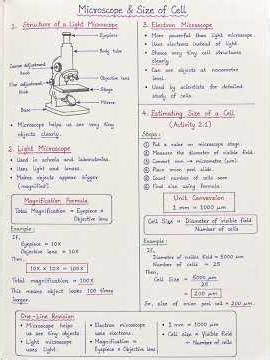 Microscope & Size of Cell
1. Structure of a Light Microscope
Eyepiece
Body tube
Coarse adjustment knob
Fine adjustment knob
Objective lens
Stage
Base
Mirror
• Microscope helps us see very tiny
objects clearly.
2. Light Microscope
• Used in schools and laboratories.
• Uses light and lenses.
• Makes objects appear bigger
(magnified).
Magnification Formula
Total Magnification = Eyepiece ×
Objective lens
Example:
If,
Eyepiece = 10X
Objective lens = 10X
Then,
10X × 10X = 100X
Total magnification = 100X
This means object looks 100 times
larger.
3. Electron Microscope
• More powerful than light microscope.
• Uses electrons instead of light.
• Shows very tiny cell structures
clearly.
• Can see objects at nanometre
level.
• Used by scientists for detailed
study of cells.
4. Estimating Size of a Cell
(Activity 2.1)
Steps:
① Put a ruler on microscope stage.
② Measure the diameter of visible field.
③ Convert mm → micrometre (µm).
④ Place onion peel slide.
⑤ Count number of cells seen
⑥ Find size using formula.
Unit Conversion
1 mm = 1000 µm
Cell Size = Diameter of visible field
Number of cells
Example:
If,
Diameter of visible field = 5000 µm
Number of cells = 25
Then,
Cell Size = 5000 µm
25
= 200 µm
So, size of onion peel cell = 200 µm.
One-Line Revision
• Microscope helps
us see tiny objects.
• Light microscope
uses light.
• Electron microscope
uses electrons.
• Magnification =
Eyepiece × Objective lens
• 1 mm = 1000 µm
• Cell size = Visible field
÷ Number of cells